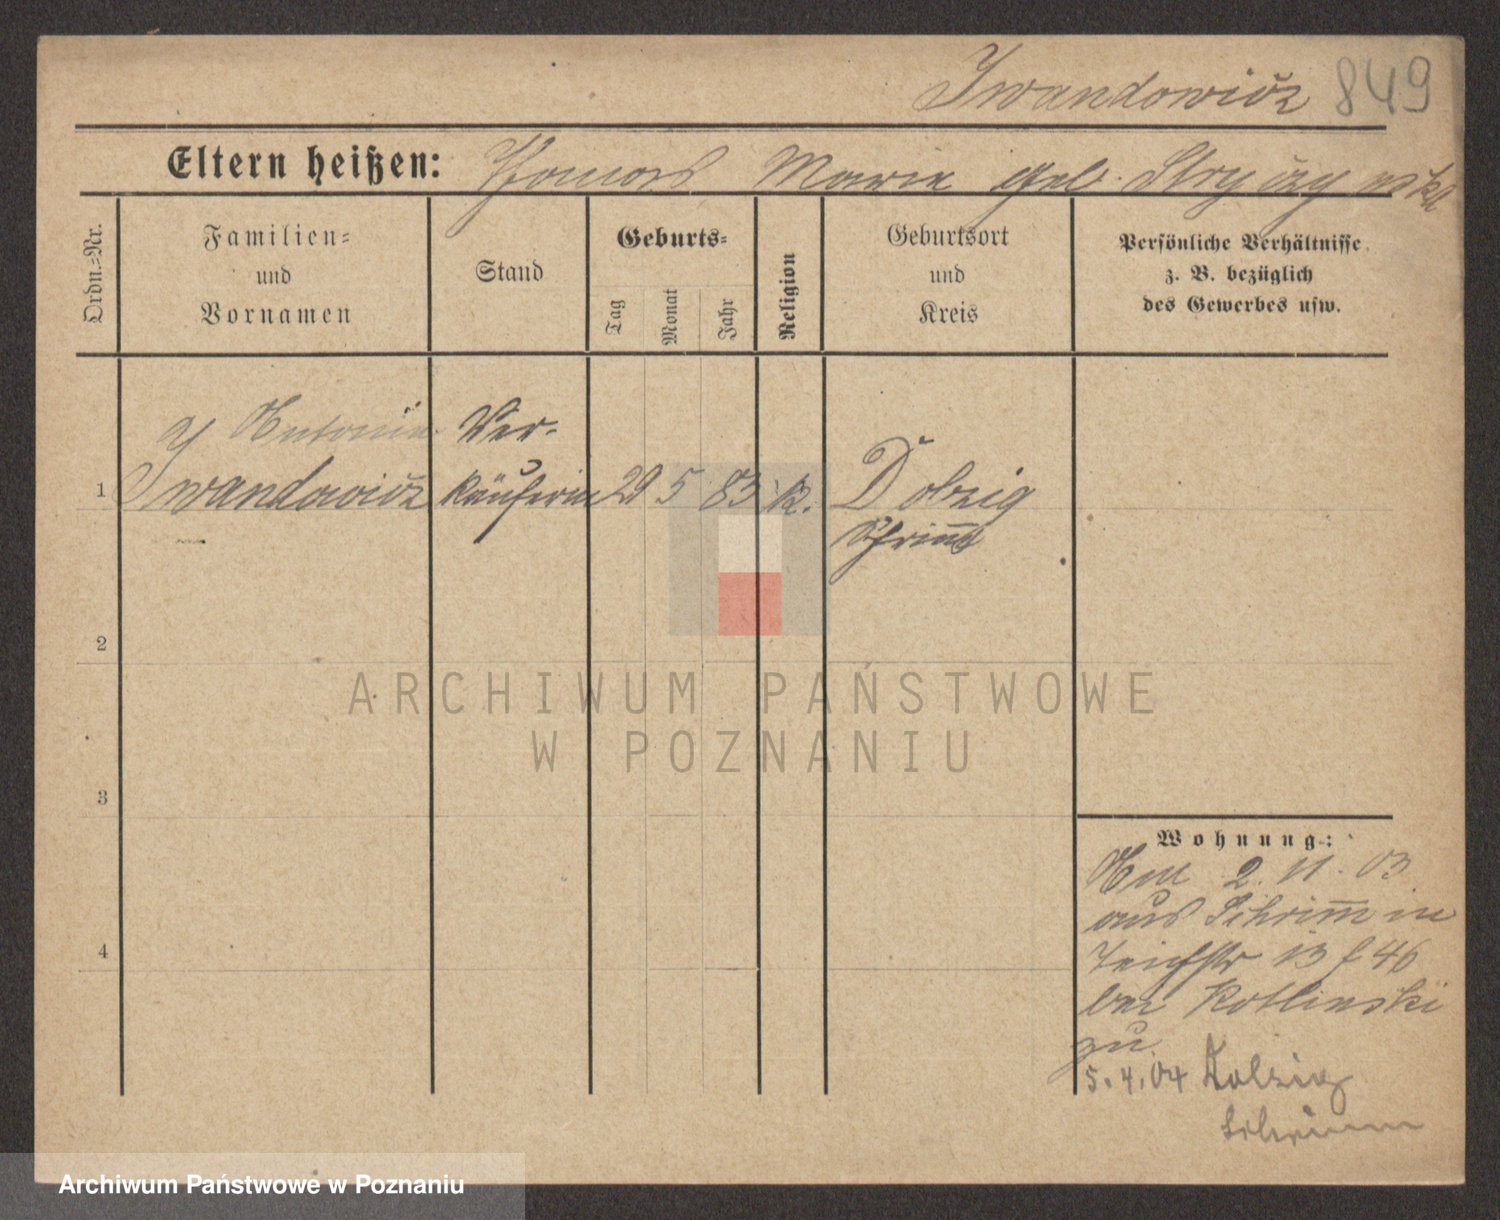 Iwandowicz 849
Eltern heißen: Thomas Marie geb. Stryczynska
Ordn.-Nr.
Familien-
und
Vornamen
Stand
Geburts-
Tag
Monat
Jahr
Religion
Geburtsort
und
Kreis
Persönliche Verhältnisse
z. B. bezüglich
des Gewerbes usw.
Antonie Ver-
1 Iwandowicz käuferin 29 5 83 k. Dolzig
Schrim̅
2
3
4
Wohnung:
2. 11. 03
aus Schrim̅ in
Teichstr 13 f 46
bei Kotlinski
zu
5.4.04 Dolzig
Schrimm
ARCHIWUM PAŃSTWOWE
W POZNANIU
Archiwum Państwowe w Poznaniu